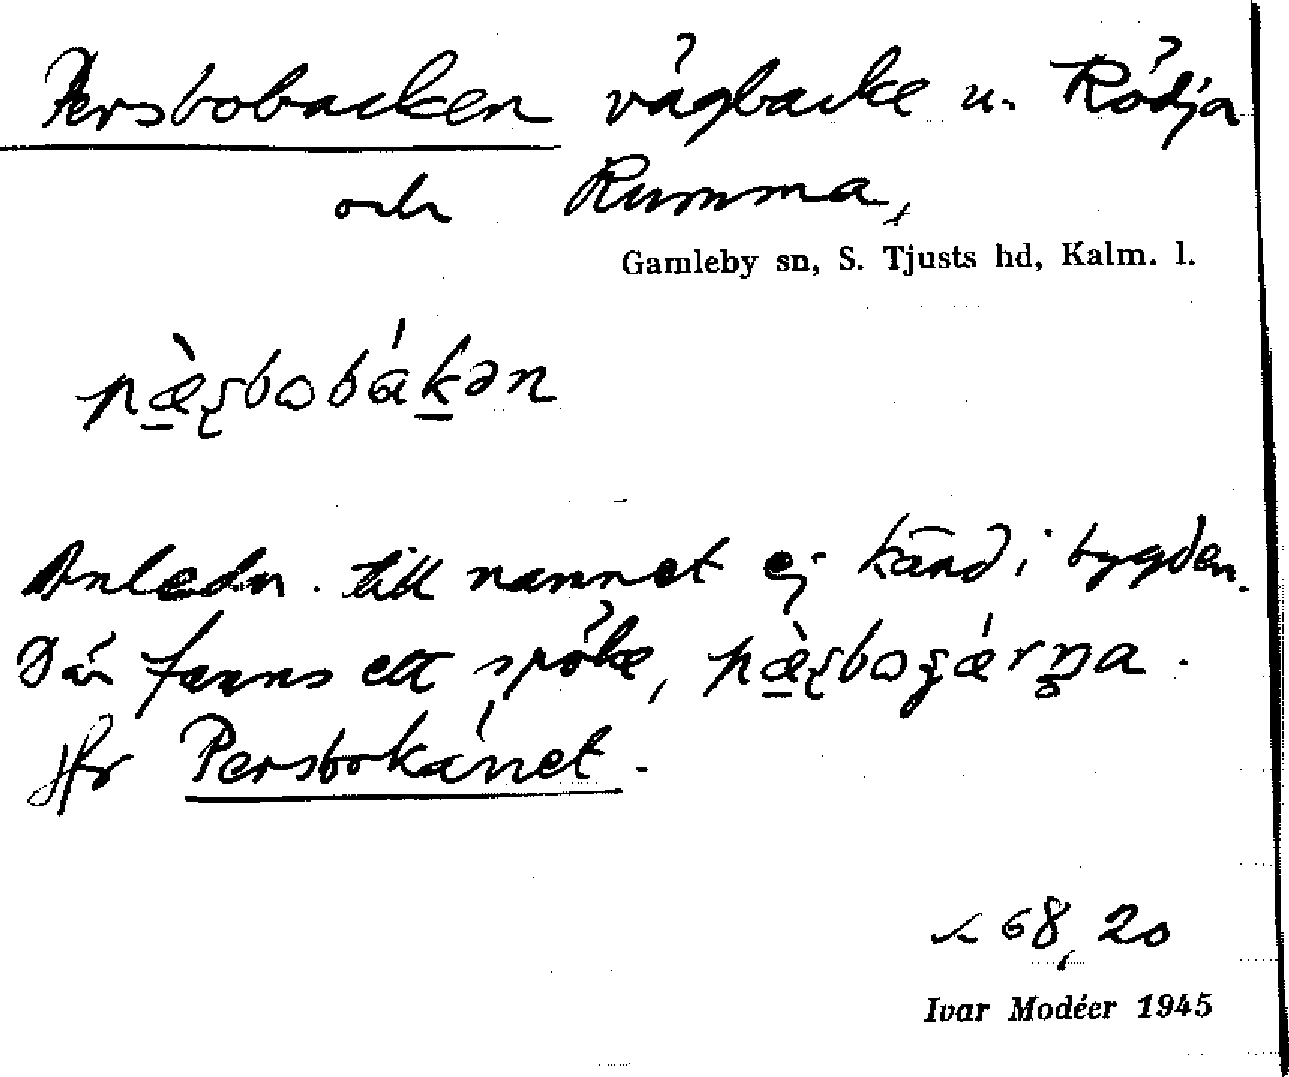 Persbobacken vägbacke u. Rödja
och Rumma,
Gamleby sn, S. Tjusts hd, Kalm. l.
Anledn. till namnet ej känd i bygden.
Där fanns ett spöke,
Jfr Persbokärret.
68, 20
Ivar Modéer 1945